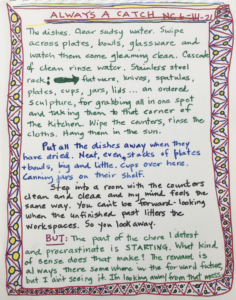 ALWAYS A CATCH NC 6-III-21
The dishes. Clear sudsy water. Swipe
across plates, bowls, glassware and
watch them come gleaming clean. Cascade
of clean rinse water. Stainless steel
rack: flatware, knives, spatulas,
plates, cups, jars, lids ... an ordered
sculpture, for grabbing all in one spot
and taking them to that corner of
the kitchen. Wipe the counters, rinse the
cloths. Hang them in the sun.
Put all the dishes away when they
have dried. Neat, even, stacks of plates
+ bowls, big and little. Cups over here.
Canning jars on their shelf.
Step into a room with the counters
clean and clear and my mind feels the
same way. You can't be forward-looking
when the unfinished past litters the
workspaces. So you look away.
BUT: The part of the chore I detest
and procrastinate is STARTING. What kind
of sense does that make? The reward is
always there somewhere up the forward fiction,
but I ain't seeing it. I'm looking away from that mess.